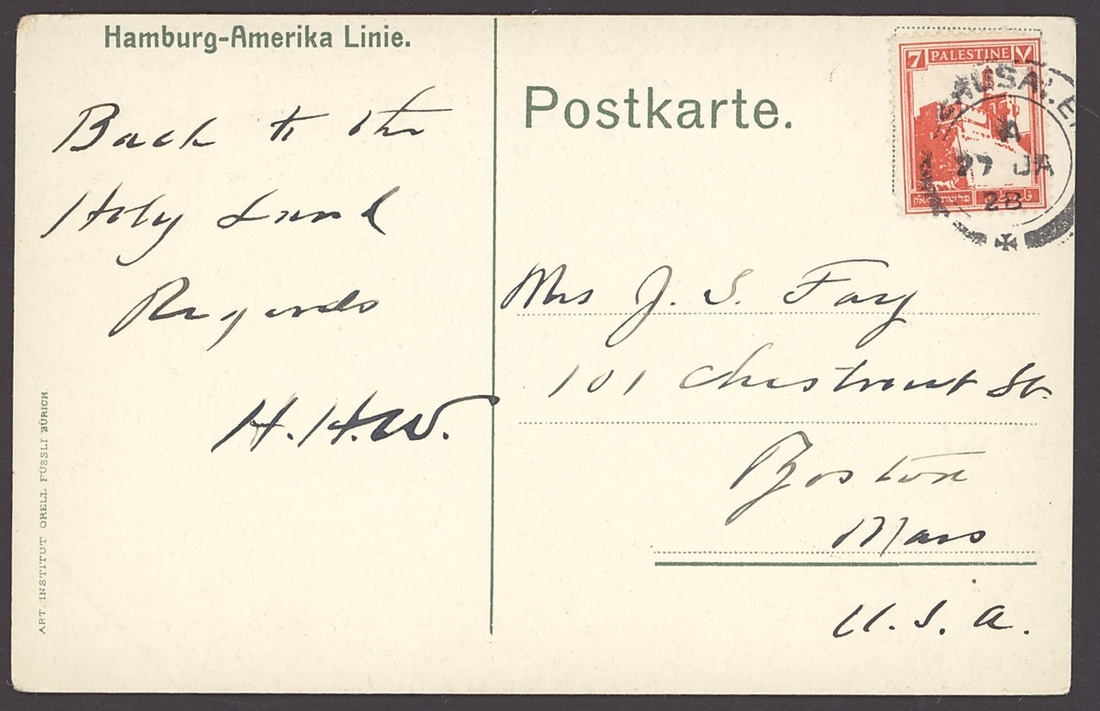 Hamburg-Amerika Linie.
Back to the
Holy Land
Regards
H.H.W.
ART. INSTITUT ORELL FÜSSLI ZÜRICH
Postkarte.
7 PALESTINE ٧
JERUSALEM
A
27 JA
28
Mrs J. S. Fay
101 Chestnut St.
Boston
Mass
U.S.A.